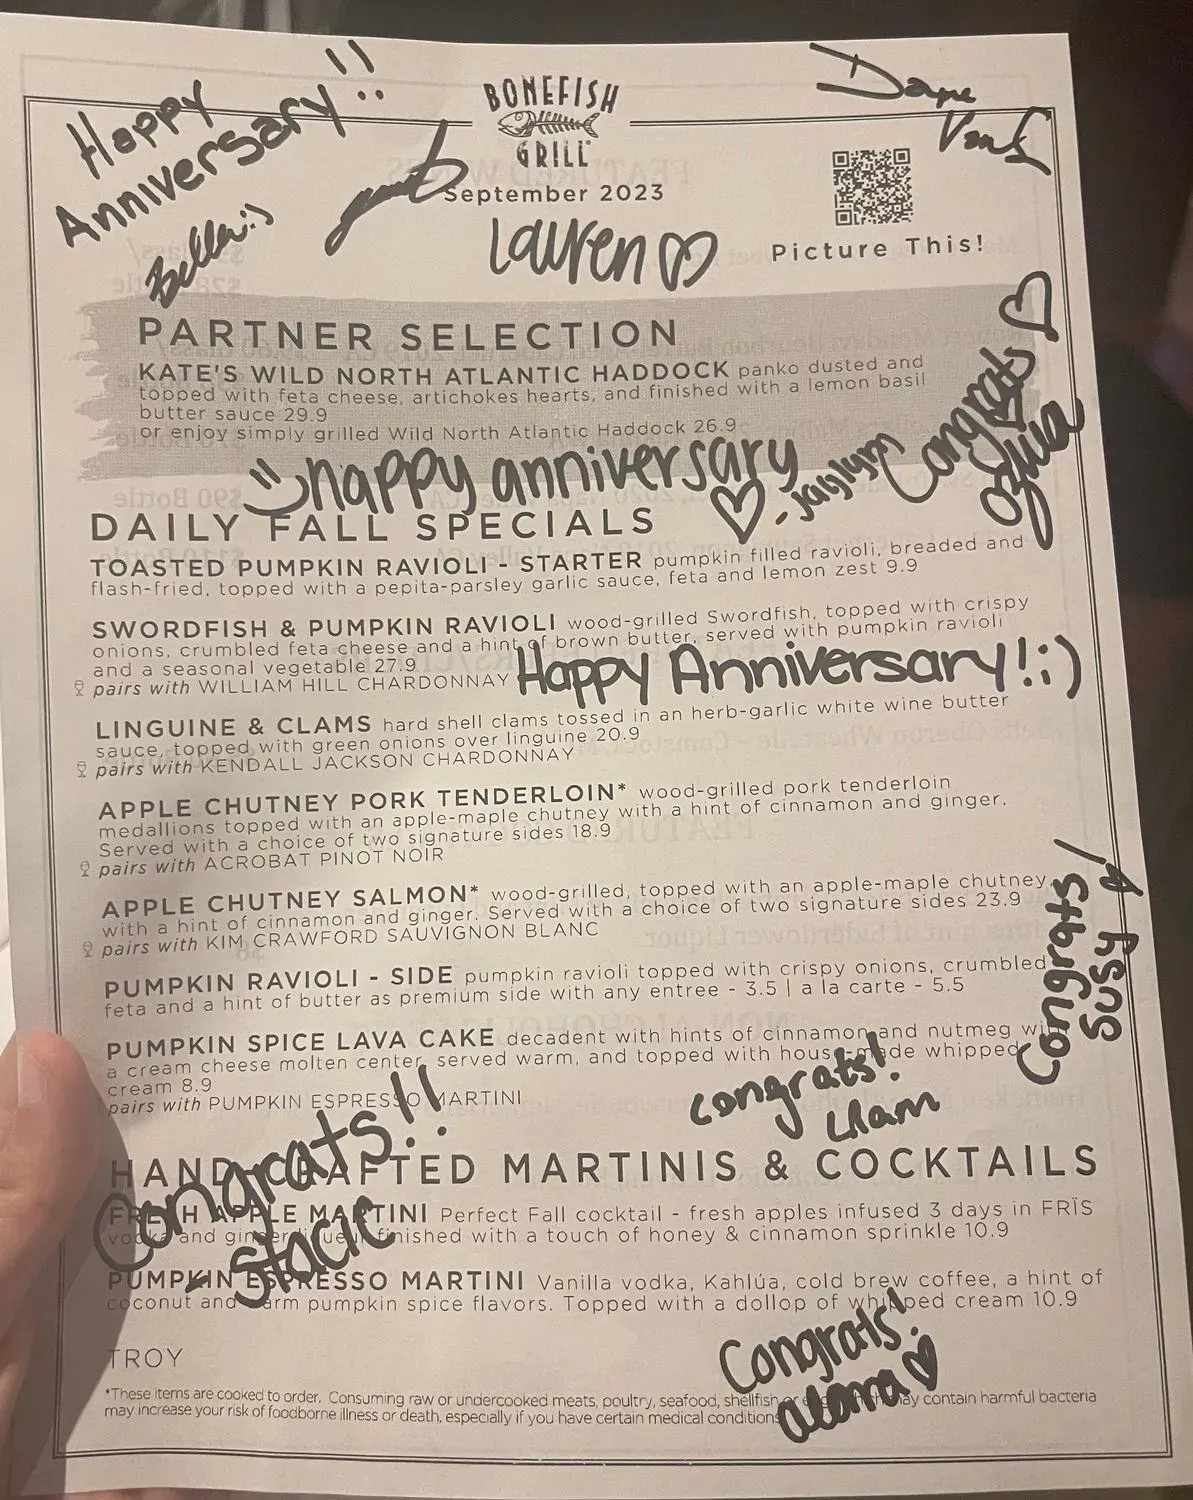 Happy
Anniversary!!
BONEFISH
GRILL
September 2023
Lauren
Picture This!
PARTNER SELECTION
KATE'S WILD NORTH ATLANTIC HADDOCK panko dusted and
topped with feta cheese, artichokes hearts, and finished with a lemon basil
butter sauce 29.9
or enjoy simply grilled Wild North Atlantic Haddock 26.9
happy anniversary
Congrats
DAILY FALL SPECIALS
TOASTED PUMPKIN RAVIOLI - STARTER pumpkin filled ravioli, breaded and
flash-fried, topped with a pepita-parsley garlic sauce, feta and lemon zest 9.9
SWORDFISH & PUMPKIN RAVIOLI wood-grilled Swordfish, topped with crispy
onions, crumbled feta cheese and a hint of brown butter, served with pumpkin ravioli
and a seasonal vegetable 27.9
pairs with WILLIAM HILL CHARDONNAY
Happy Anniversary! :)
LINGUINE & CLAMS hard shell clams tossed in an herb-garlic white wine butter
sauce, topped with green onions over linguine 20.9
pairs with KENDALL JACKSON CHARDONNAY
APPLE CHUTNEY PORK TENDERLOIN* wood-grilled pork tenderloin
medallions topped with an apple-maple chutney with a hint of cinnamon and ginger.
Served with a choice of two signature sides 18.9
pairs with ACROBAT PINOT NOIR
APPLE CHUTNEY SALMON* wood-grilled, topped with an apple-maple chutney
with a hint of cinnamon and ginger. Served with a choice of two signature sides 23.9
pairs with KIM CRAWFORD SAUVIGNON BLANC
Congrats!
Susy
PUMPKIN RAVIOLI - SIDE pumpkin ravioli topped with crispy onions, crumbled
feta and a hint of butter as premium side with any entree - 3.5 | a la carte - 5.5
PUMPKIN SPICE LAVA CAKE decadent with hints of cinnamon and nutmeg with
a cream cheese molten center, served warm, and topped with house-made whipped
cream 8.9
pairs with PUMPKIN ESPRESSO MARTINI
congrats!
Liam
Congrats!!
HAND CRAFTED MARTINIS & COCKTAILS
FRESH APPLE MARTINI Perfect Fall cocktail - fresh apples infused 3 days in FRÏS
vodka and ginger liqueur finished with a touch of honey & cinnamon sprinkle 10.9
PUMPKIN ESPRESSO MARTINI Vanilla vodka, Kahlúa, cold brew coffee, a hint of
coconut and warm pumpkin spice flavors. Topped with a dollop of whipped cream 10.9
Congrats!
TROY
*These items are cooked to order. Consuming raw or undercooked meats, poultry, seafood, shellfish or eggs which may contain harmful bacteria
may increase your risk of foodborne illness or death, especially if you have certain medical conditions